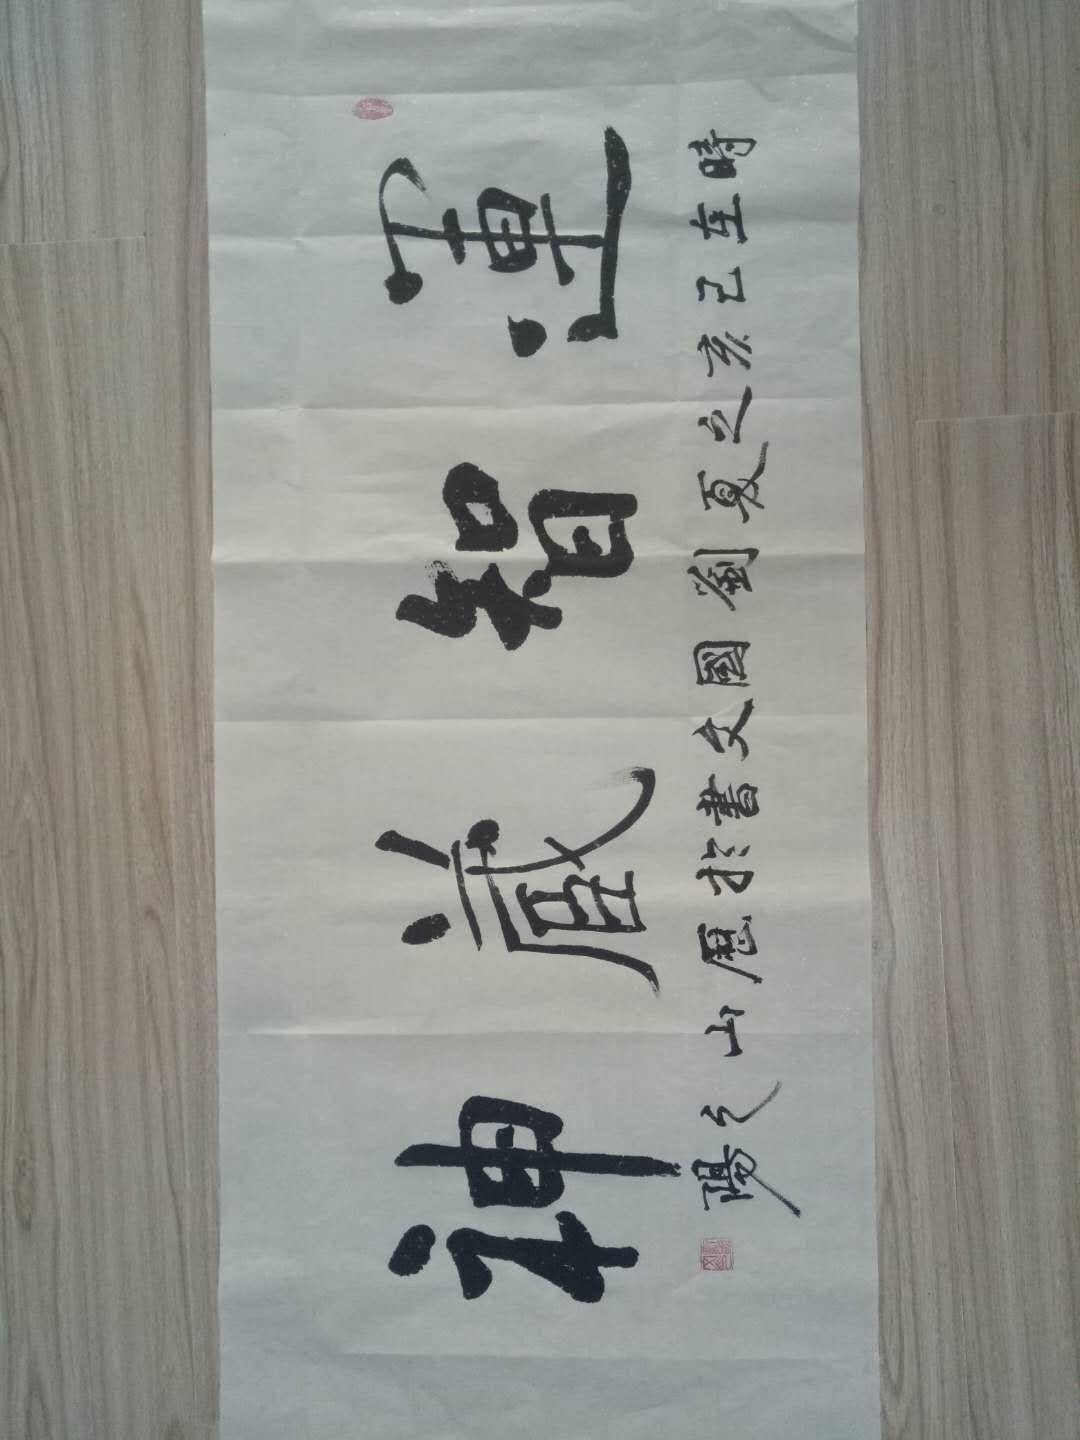 運智藏神
時在己亥之夏劉國文書於歷山之陽